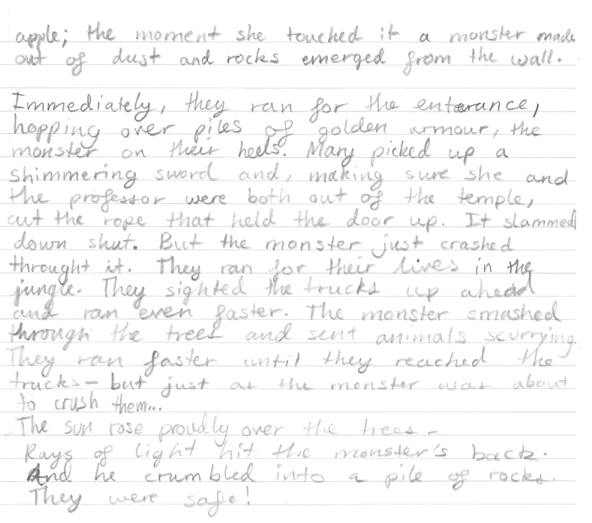 apple; the moment she touched it a monster made
out of dust and rocks emerged from the wall.
Immediately, they ran for the enterance,
hopping over piles of golden armour, the
monster on their heels. Mary picked up a
shimmering sword and, making sure she and
the professor were both out of the temple,
cut the rope that held the door up. It slammed
down shut. But the monster just crashed
throught it. They ran for their lives in the
jungle. They sighted the trucks up ahead
and ran even faster. The monster smashed
through the trees and sent animals scurrying.
They ran faster until they reached the
trucks – but just as the monster was about
to crush them...
The sun rose proudly over the trees –
Rays of light hit the monster's back.
And he crumbled into a pile of rocks.
They were safe!